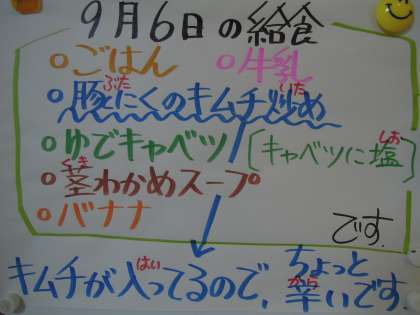 9月6日の給食
○ごはん ○牛乳
○豚にくのキムチ炒め
ぶた いた
○ゆでキャベツ [キャベツに塩]
しお
○茎わかめスープ
くき
○バナナ
です。
キムチが入ってるので、ちょっと辛いです。
はい から